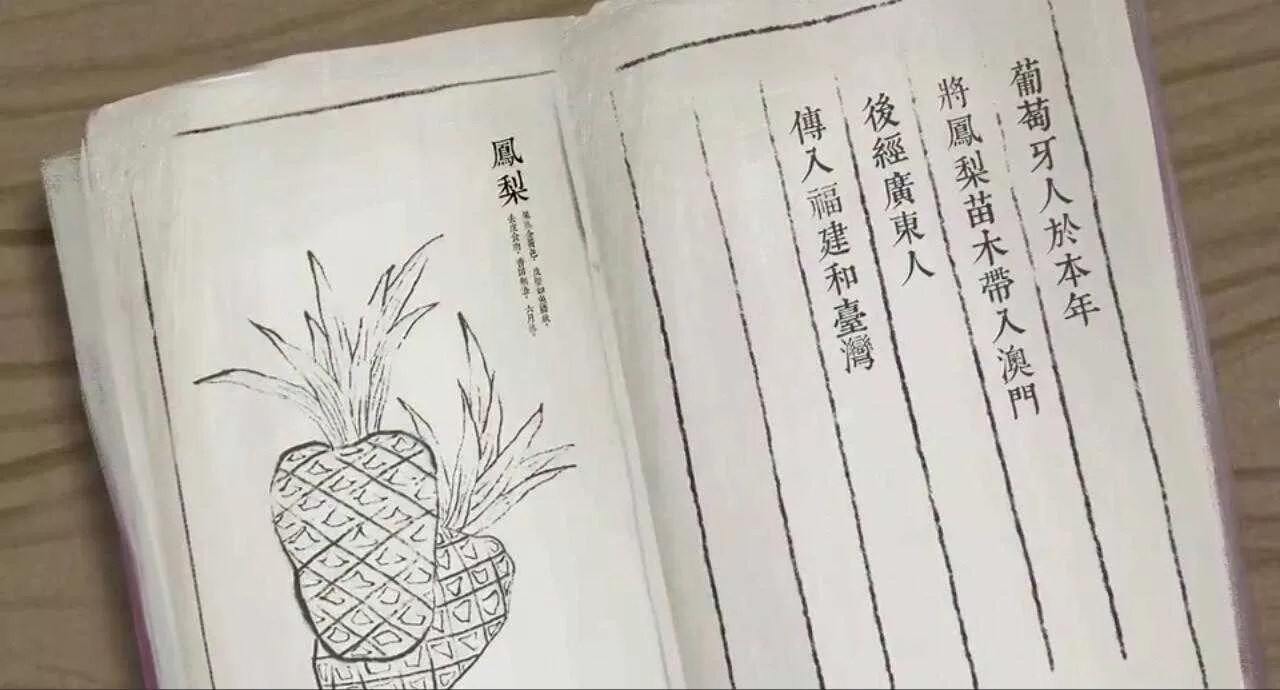 葡萄牙人於本年
將鳳梨苗木帶入澳門
後經廣東人
傳入福建和臺灣
鳳梨